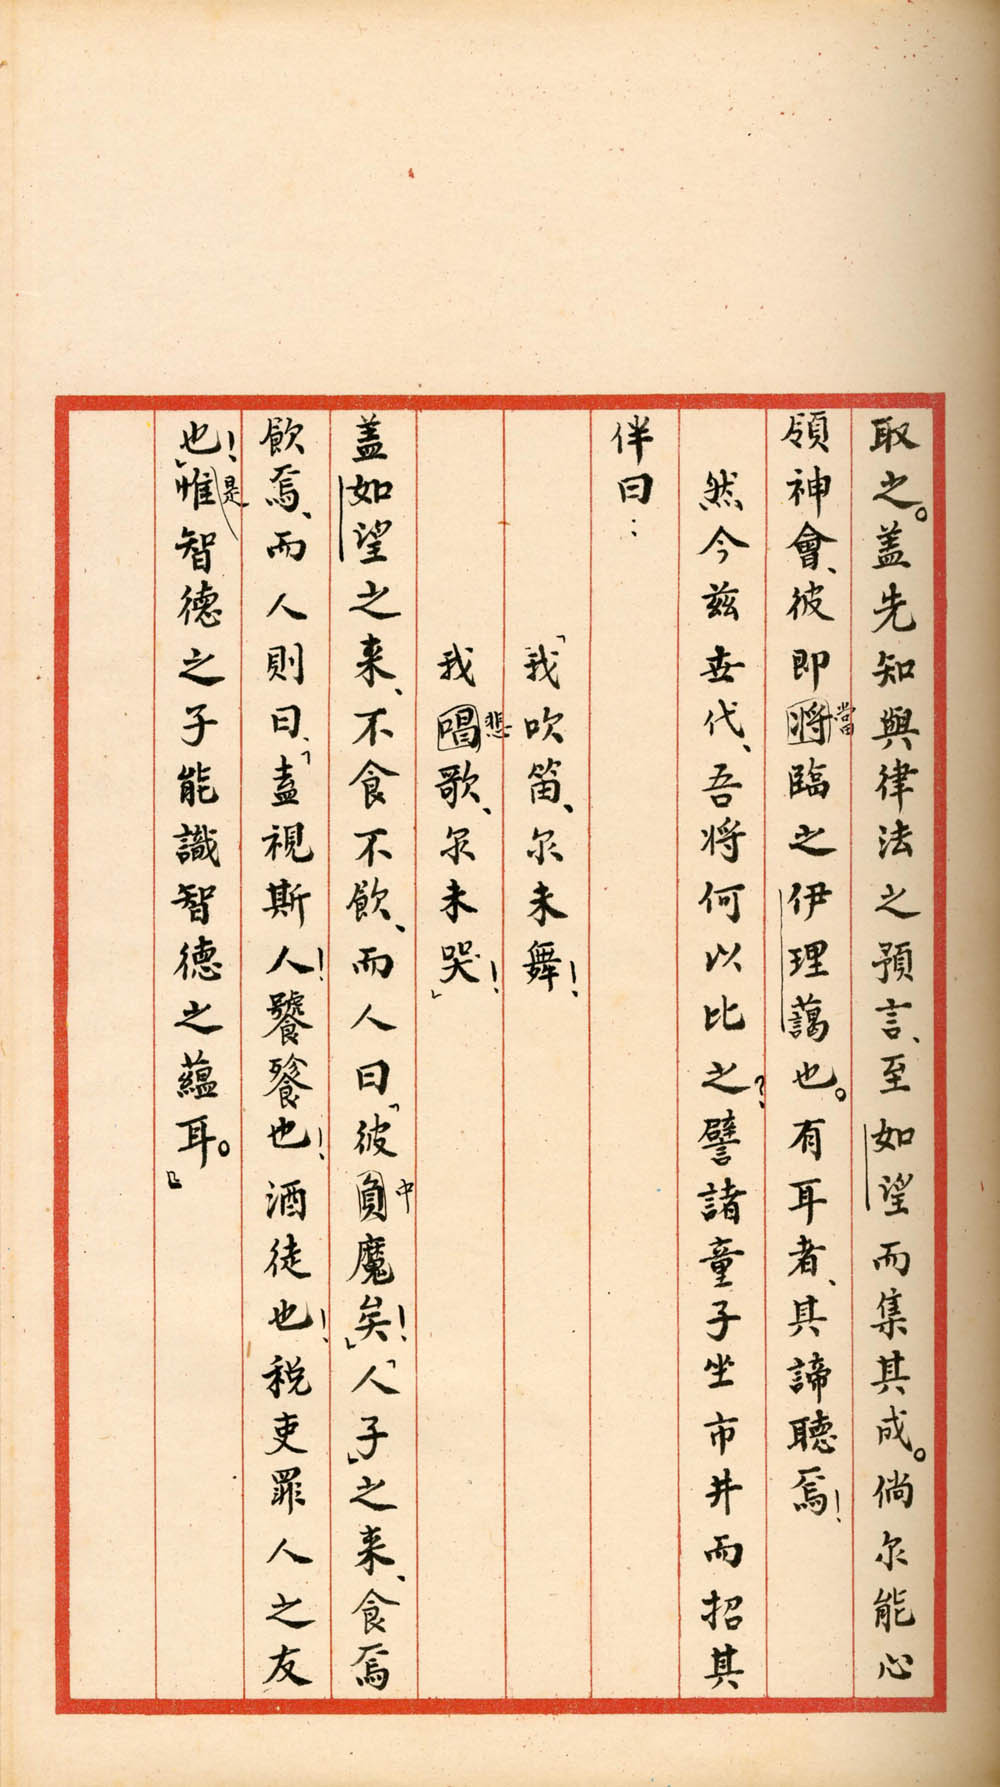 取之。蓋先知與律法之預言、至如望而集其成。倘尔能心
領神會、彼即將當臨之伊理藹也。有耳者、其諦聽焉！
然今茲世代、吾將何以比之？譬諸童子坐市井而招其
伴曰：
「我吹笛、尔未舞！
我唱悲歌、尔未哭！」
蓋如望之来、不食不飲、而人曰、「彼負中魔矣！」「人子」之来、食焉
飲焉、而人則曰、「盍視斯人！饕餮也！酒徒也！税吏罪人之友
也！」惟是智德之子能識智德之蘊耳。』